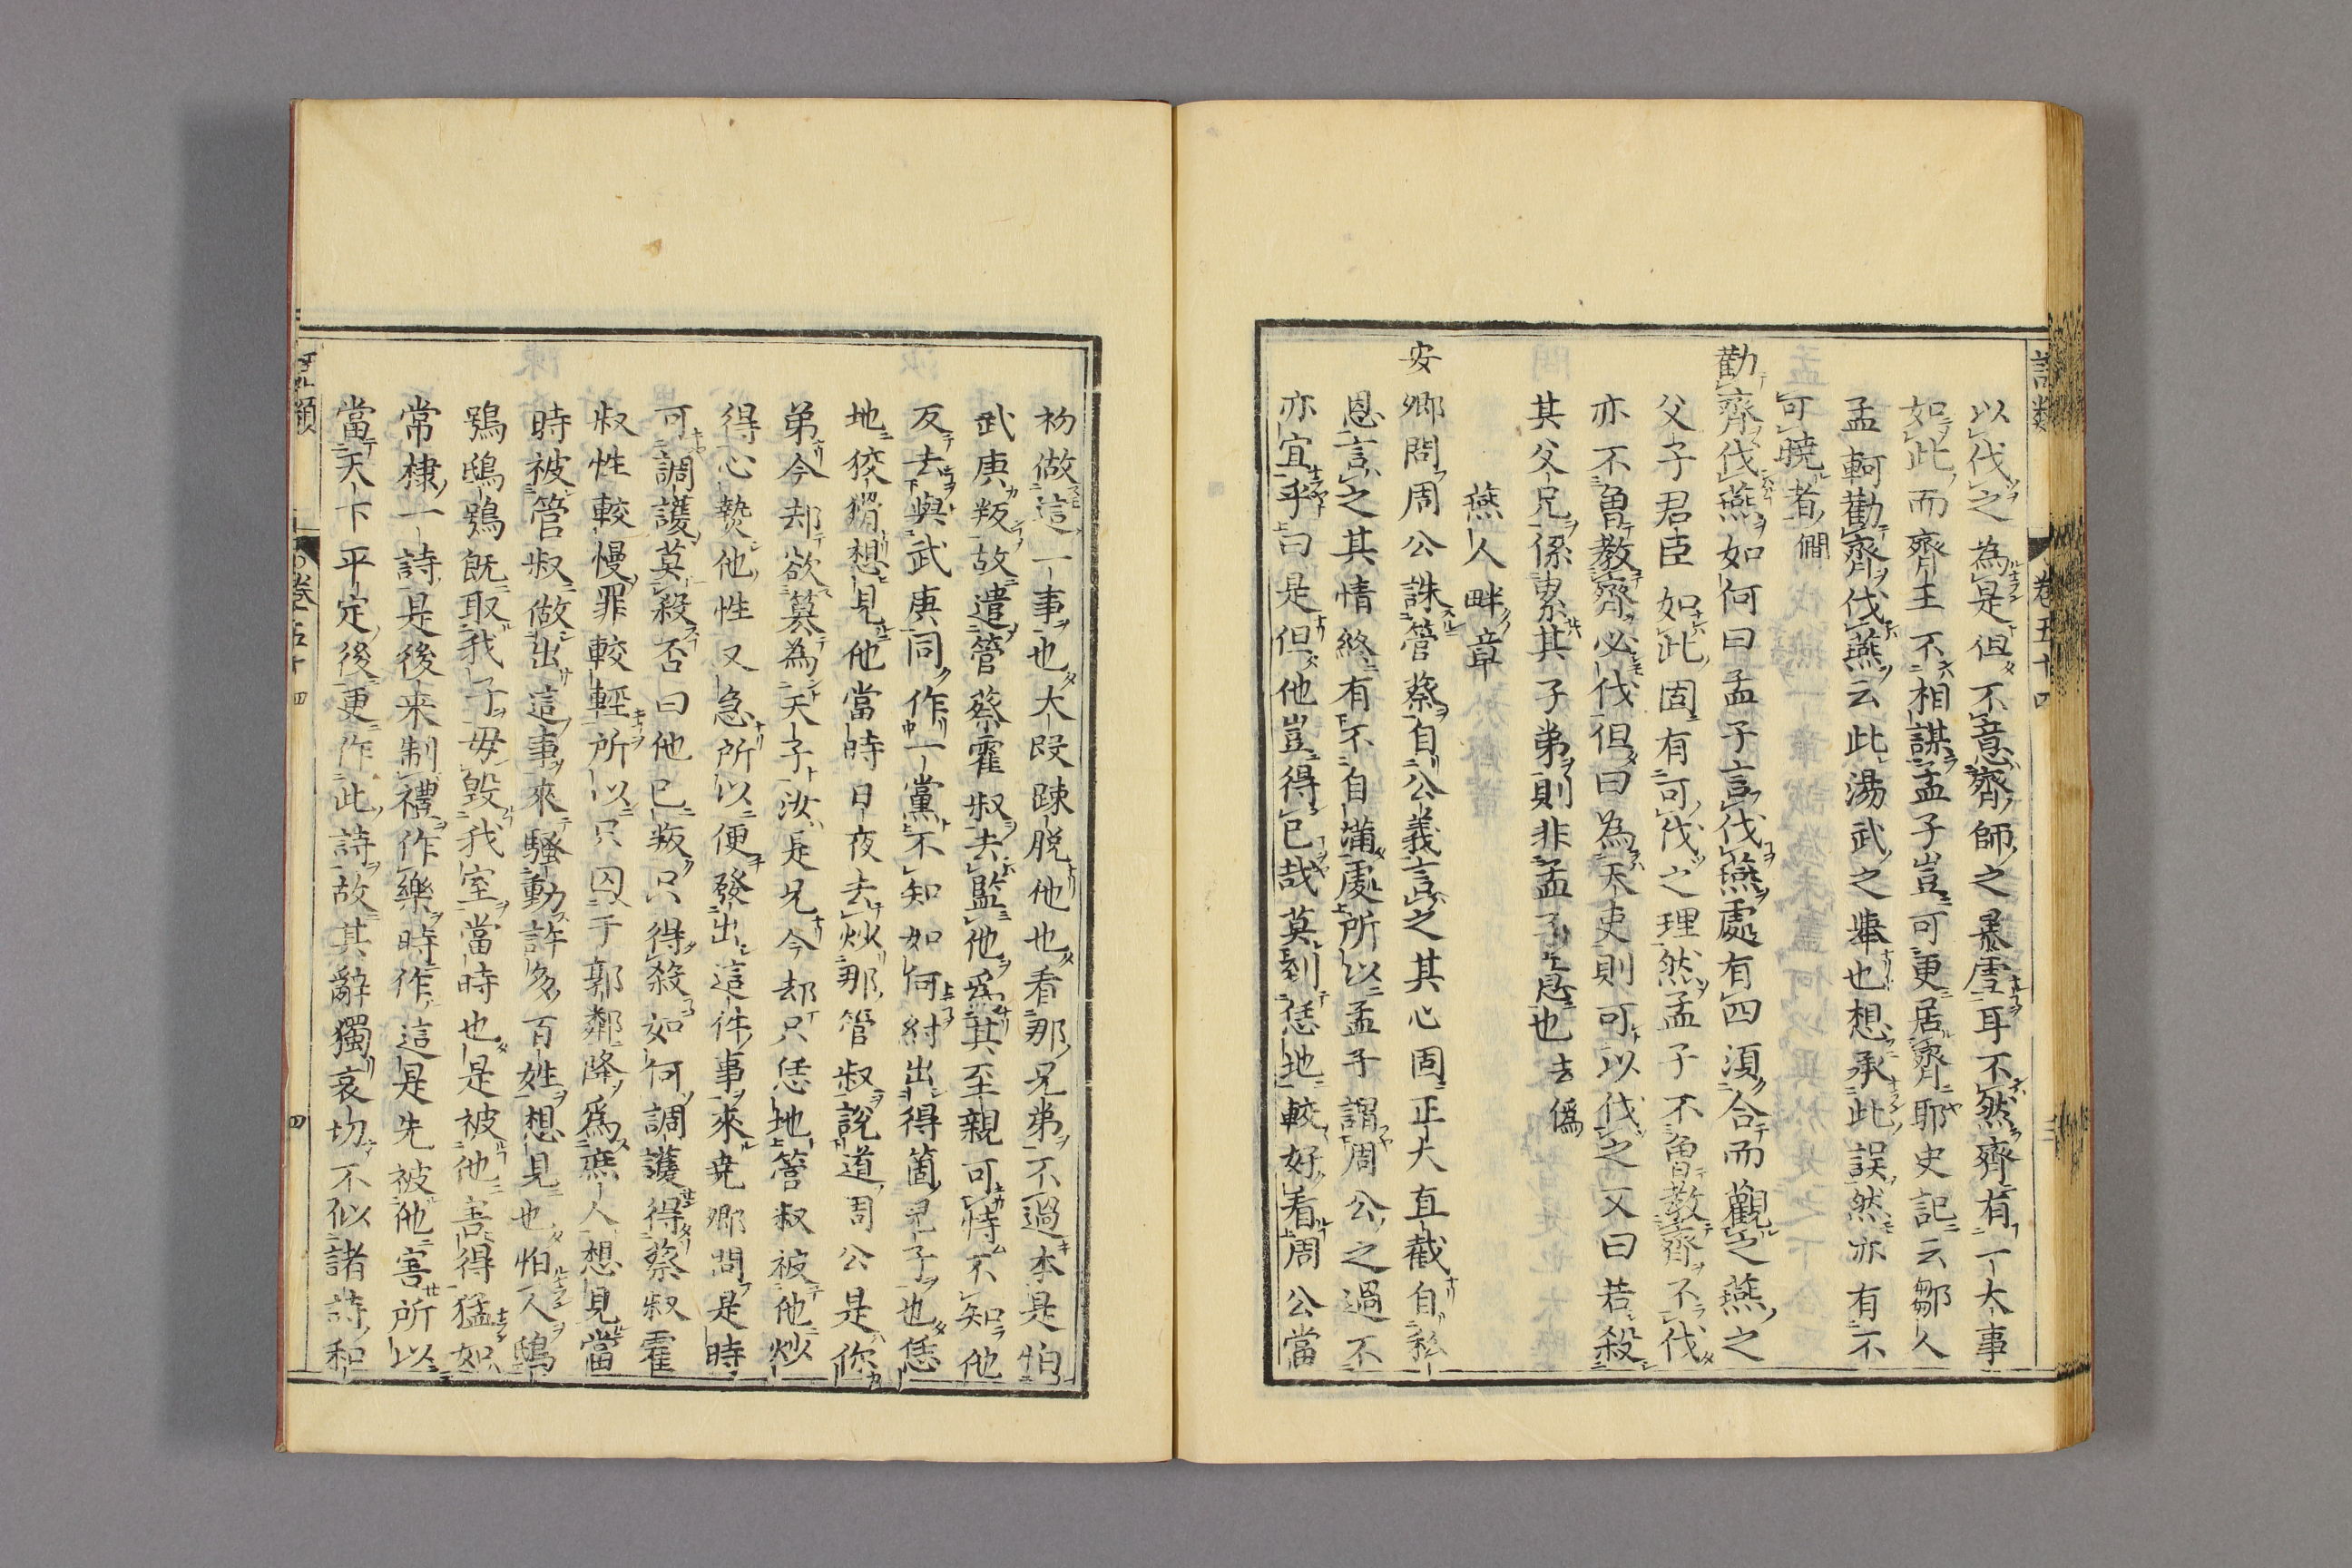 語類 卷五十四
以伐之為是但不意齊師之暴虐耳不然齊有一大事
如此而齊王不相謀孟子豈可更居齊耶史記云鄒人
孟軻勸齊伐燕云此湯武之舉也想承此誤然亦有不
可曉者僩
勸齊伐燕如何曰孟子言伐燕處有四須合而觀之燕之
父子君臣如此固有可伐之理然孟子不曾教齊不伐
亦不曾教齊必伐但曰為天吏則可以伐之又曰若殺
其父兄係累其子弟則非孟子意也去偽
燕人畔章
安卿問周公誅管蔡自公義言之其心固正大直截自私
恩言之其情終有不自滿處所以孟子謂周公之過不
亦宜乎曰是但他豈得已哉莫到恁地較好看周公當
初做這一事也大段疎脫他也看那兄弟不過本是怕
武庚叛故遣管蔡霍叔去監他為其至親可恃不知他
反去與武庚同作一黨不知如何紂出得箇兒子也恁
地狡猾想見他當時日夜去炒那管叔說道周公是你
弟今却欲篡為天子汝是兄今却只恁地管叔被他炒
得心熱他性又急所以便發出這件事來堯卿問是時
可調護莫殺否曰他已叛只得殺如何調護得蔡叔霍
叔性較慢罪較輕所以只囚于郭鄰降為庶人想見當
時被管叔做出這事來騷動許多百姓想見也怕人鴟
鴞鴟鴞既取我子毋毀我室當時也是被他害得猛如
常棣一詩是後来制禮作樂時作這是先被他害所以
當天下平定後更作此詩故其辭獨哀切不似諸詩和
語類 卷五十四 四